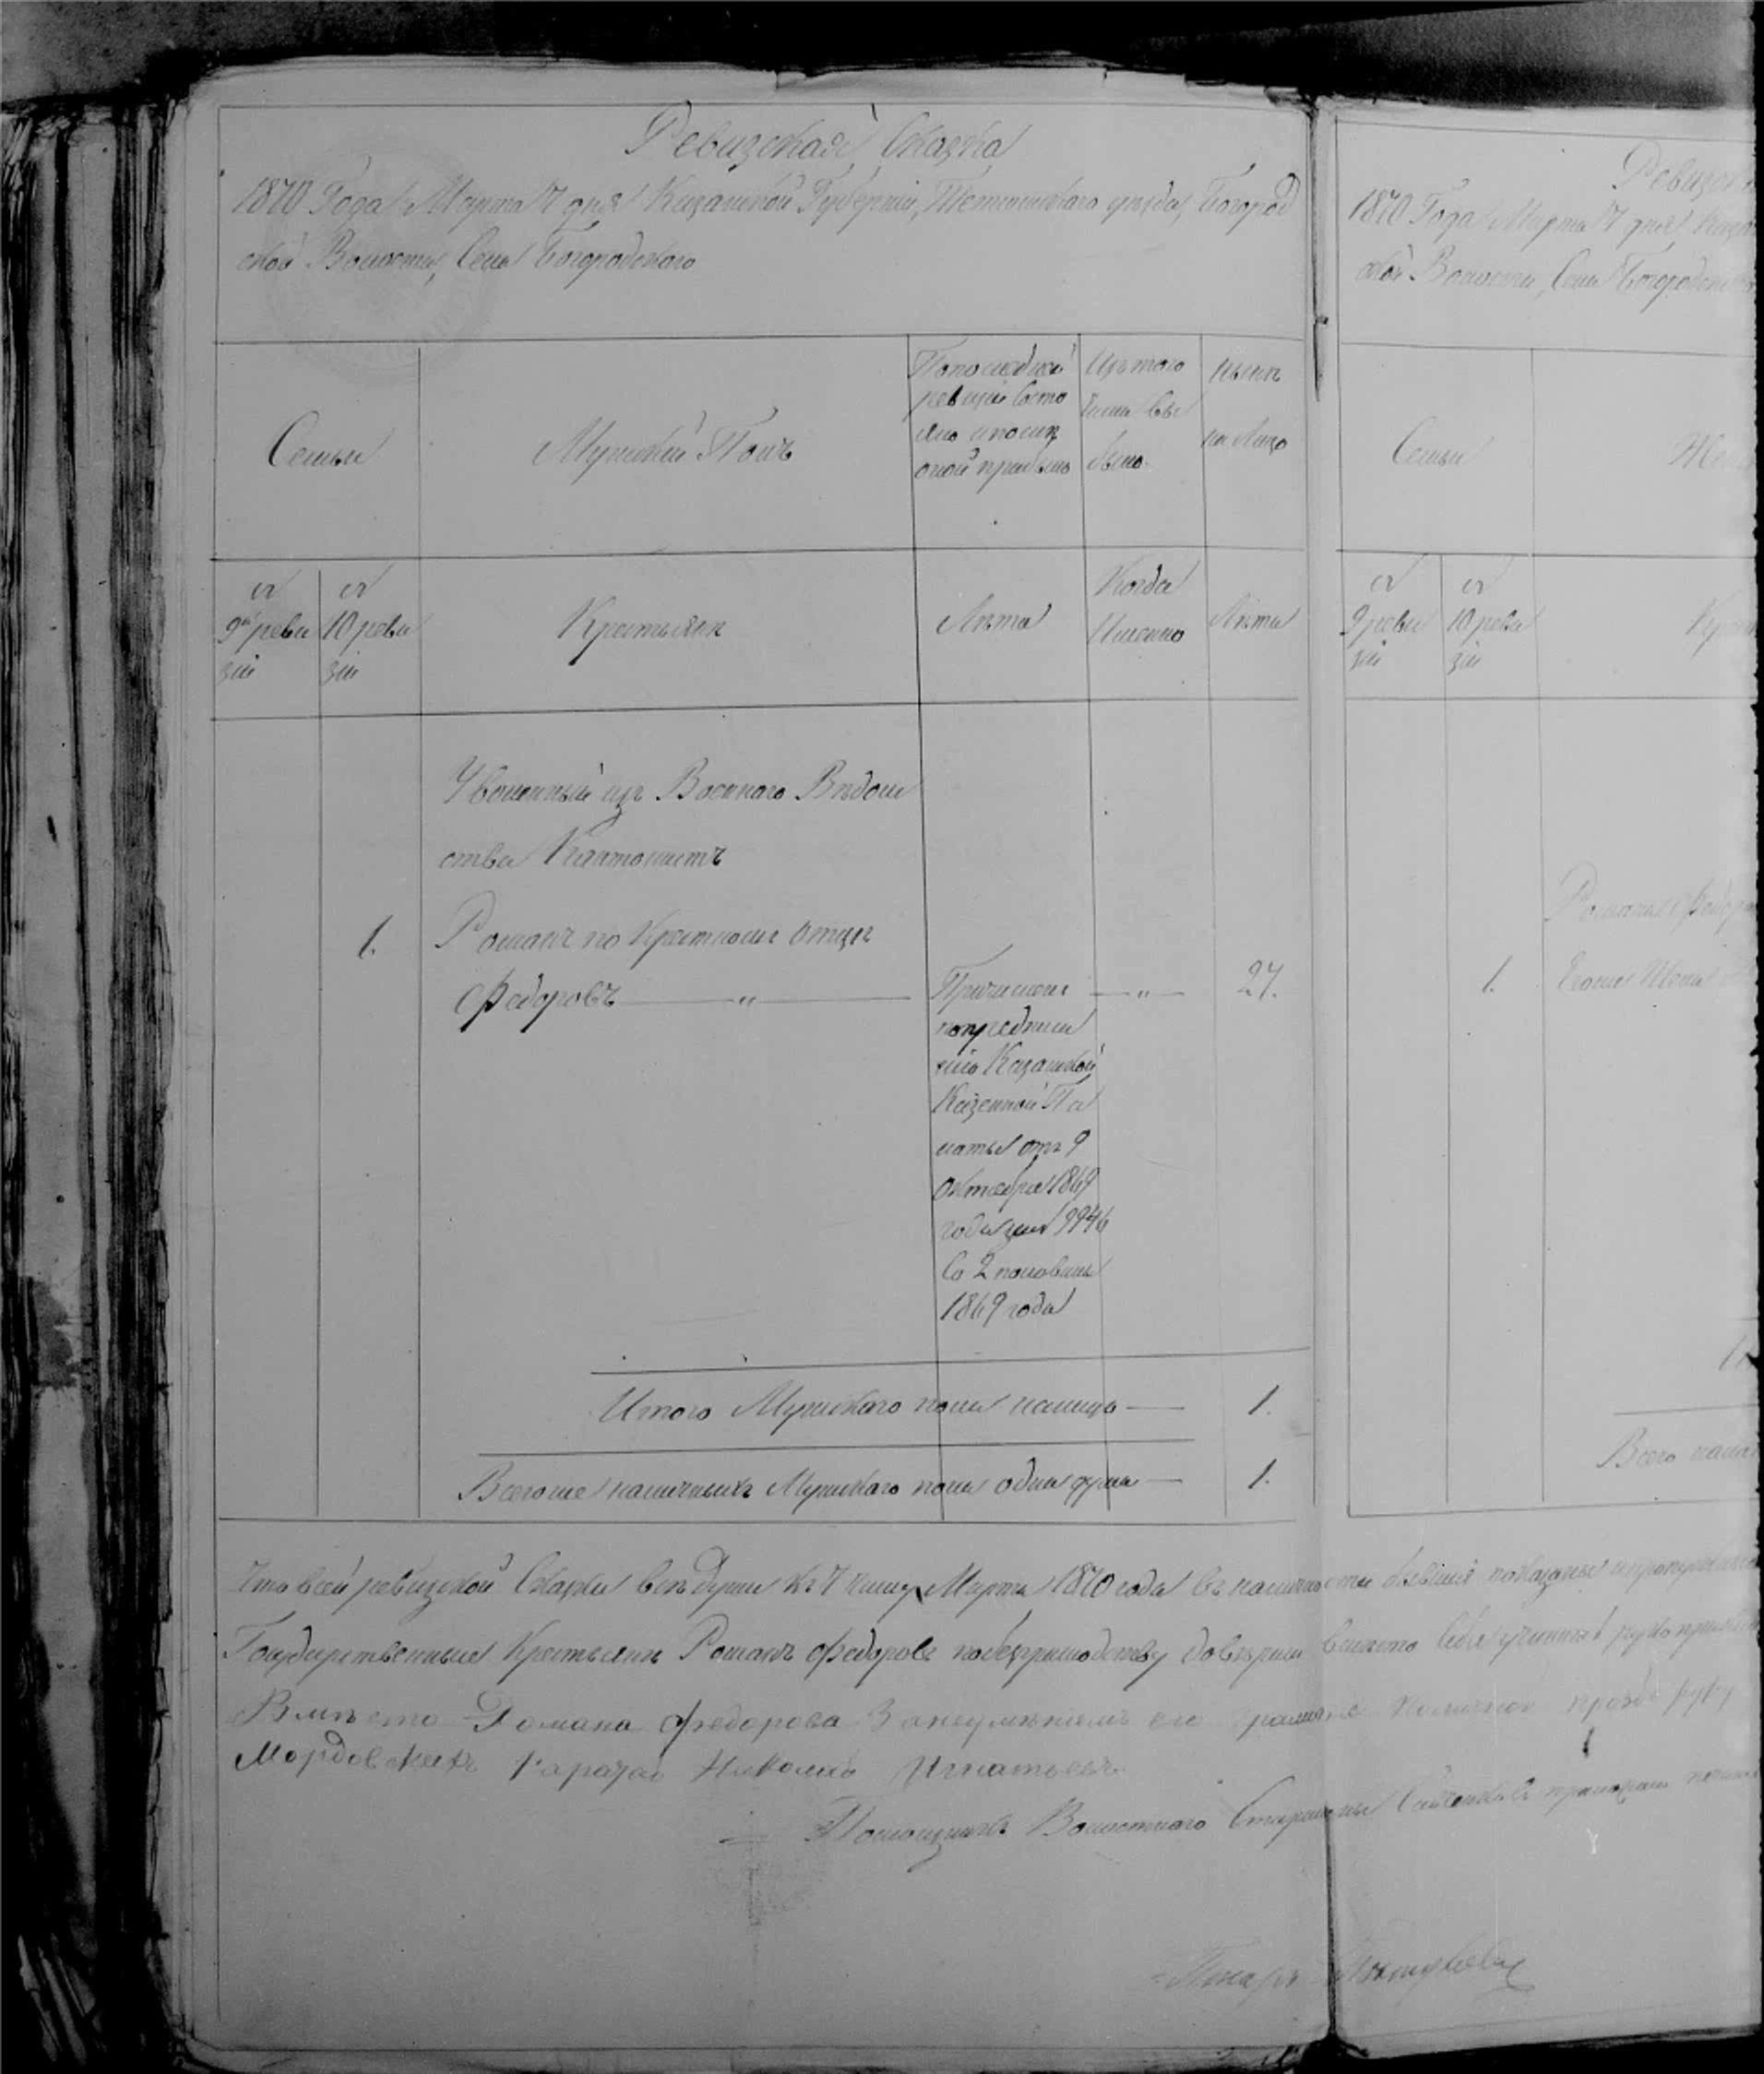 Ревизская Сказка
1870 Года Марта 7 дня Казанской Губернии, Тетюшскаго уезда, Богород
ской Волости, Села Богородскаго
Семьи
Мужский Полъ
По последней
ревизіи состо
яло и после
оной прибыло
Изъ того
числа вы
было
Ныне
на лицо
С
9й реви
зіи
С
10 реви
зіи
Крестьяне
Лѣта
Когда
Именно
Лѣта
Уволенный изъ Военнаго Вѣдом
ства Кантонистъ
1. Романъ по Крестному Отцу
Федоровъ — „ —
Причисленъ — „ — 27.
по предписа
нію Казанской
Казенной Па
латы отъ 9
Октября 1869
года за № 9946
Со 2 половины
1869 года
Итого Мужскаго пола налицо — 1.
Всего же наличныхъ Мужскаго пола одна душа — 1.
Что в сей ревизской Сказки все души къ 7 числу Марта 1870 года въ наличности бывшия показаны
Государственные Крестьяне Романъ Федоровъ по безграмотству довѣрилъ вместо себя учинить
Вмѣсто Романа Федорова За неумѣніемъ его грамате
Мордовскихъ Каратай Николай Игнатьевъ
Помощникъ Волостнаго Старшины
Писарь
Ревизс
1870 Года Марта 7 дня Каза
ской Волости, Села Богородскаго
Семьи
Же
С
9 реви
зіи
С
10 реви
зіи
Кр
Романа Федор
1. Жена
Всего нали